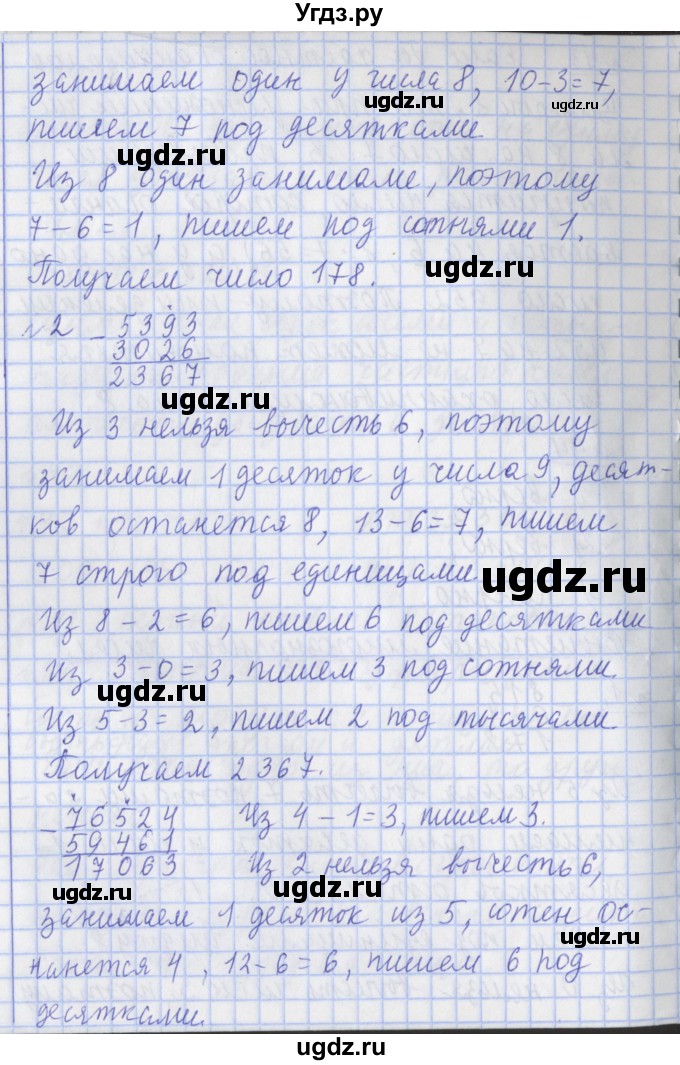 Угдз.ру
занимаем один у числа 8, 10-3=7,
ugdz.ru
пишем 7 под десятками
ugdz.ru
Из 8 один занимали, поэтому
7-6=1, пишем под сотнями 1.
ugdz.ru
Получаем число 178.
№2 - 5393
3026
2367
ugdz.ru
Из 3 нельзя вычесть 6, поэтому
занимаем 1 десяток у числа 9, десят-
ков останется 8, 13-6=7, пишем
7 строго под единицами.
ugdz.ru
Из 8-2=6, пишем 6 под десятками
Из 3-0=3, пишем 3 под сотнями.
ugdz.ru
Из 5-3=2, пишем 2 под тысячами.
Получаем 2367.
- 76524 Из 4-1=3, пишем 3.
59461
17063 Из 2 нельзя вычесть 6,
ugdz.ru
занимаем 1 десяток из 5, сотен ос-
ugdz.ru
танется 4, 12-6=6, пишем 6 под
десятками.
ugdz.ru